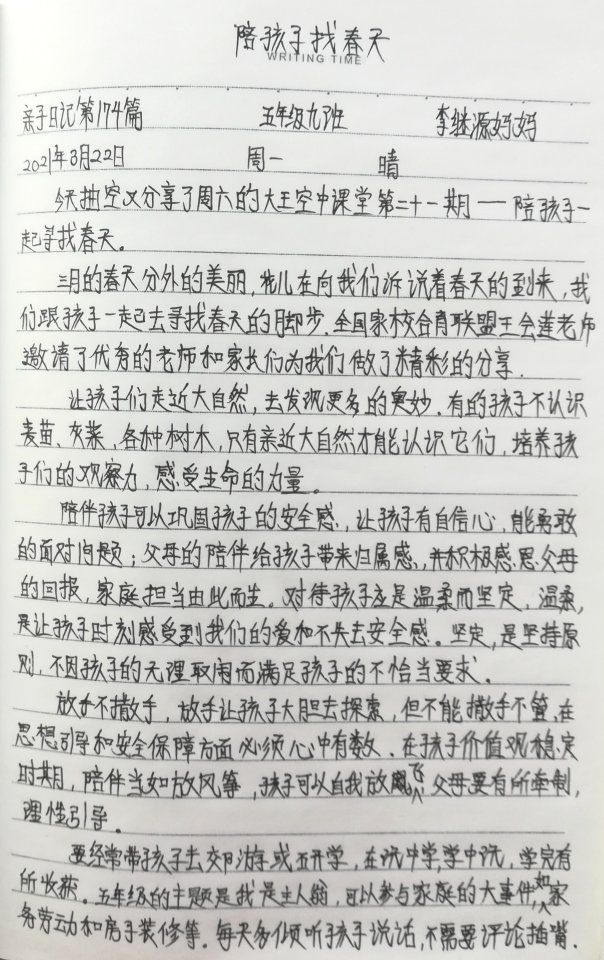 陪孩子找春天
WRITING TIME
亲子日记第174篇 五年级九班 李继源妈妈
2021年3月22日 周一 晴
今天抽空又分享了周六的大王空中课堂第二十一期——陪孩子一
起寻找春天。
三月的春天分外的美丽，花儿在向我们诉说着春天的到来，我
们跟孩子一起去寻找春天的脚步。全国家校合育联盟王会莲老师
邀请了优秀的老师和家长们为我们做了精彩的分享。
让孩子们走近大自然，去发现更多的奥妙。有的孩子不认识
麦苗、灰菜，各种树木，只有亲近大自然才能认识它们，培养孩
子们的观察力，感受生命的力量。
陪伴孩子可以巩固孩子的安全感，让孩子有自信心，能勇敢
的面对问题；父母的陪伴给孩子带来归属感，并积极感恩父母
的回报，家庭担当由此而生。对待孩子应是温柔而坚定，温柔，
是让孩子时刻感受到我们的爱和不失去安全感。坚定，是坚持原
则，不因孩子的无理取闹而满足孩子的不恰当要求。
放手不撒手，放手让孩子大胆去探索，但不能撒手不管，在
思想引导和安全保障方面必须心中有数。在孩子价值观稳定
时期，陪伴当如放风筝，孩子可以自我放飞，父母要有所牵制，
理性引导。
要经常带孩子去郊游或研学，在玩中学，学中玩，学完有
所收获。五年级的主题是我是主人翁，可以参与家庭的大事件，如家
务劳动和房子装修等。每天多倾听孩子说话，不需要评论插嘴。